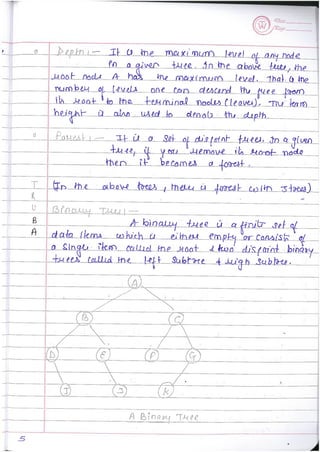 Depth :- It is the maximum level of any node
in a given tree. In the above tree, the
root node A has the maximum level. That is the
number of levels one can descend the tree from
its root to the terminal nodes (leaves). The term
height is also used to denote the depth.
Forest :- It is a set of disjoint trees. In a given
tree, if you remove its root node
then it becomes a forest.
(In the above tree, there is forest with 3 trees)
Binary Tree :-
A binary tree is a finite set of
data items which is either empty or consists of
a single item called the root & two disjoint binary
trees called the left subtree & right subtree.
A
B C
D E F G
I J K
A Binary Tree
T
R
U
B
A
5